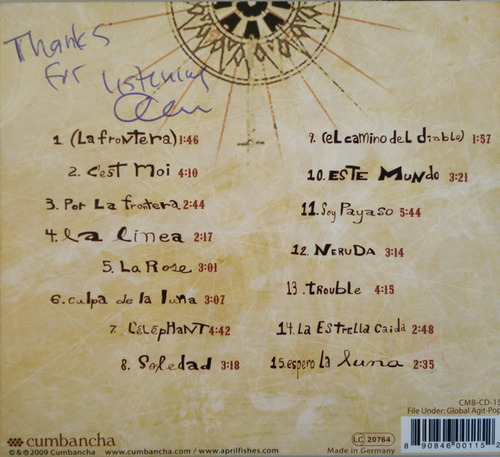 Thanks
for listening
1 (La frontera) 1:46
2. C'est Moi 4:10
3. Por La frontera 2:44
4. la Linea 2:17
5. La Rose 3:01
6. culpa de la luna 3:07
7. L'éléphant 4:42
8. Soledad 3:18
9. (el camino del diablo) 1:57
10. ESTE Mundo 3:21
11. Soy Payaso 5:44
12. NERUDA 3:14
13. trouble 4:15
14. La Estrella Caida 2:48
15. espero la luna 2:35
CMB-CD-15
File Under: Global Agit-Pop
cumbancha
© & ℗ 2009 Cumbancha www.cumbancha.com / www.aprilfishes.com Made in Germany
LC 20764
8 90846 00115 2